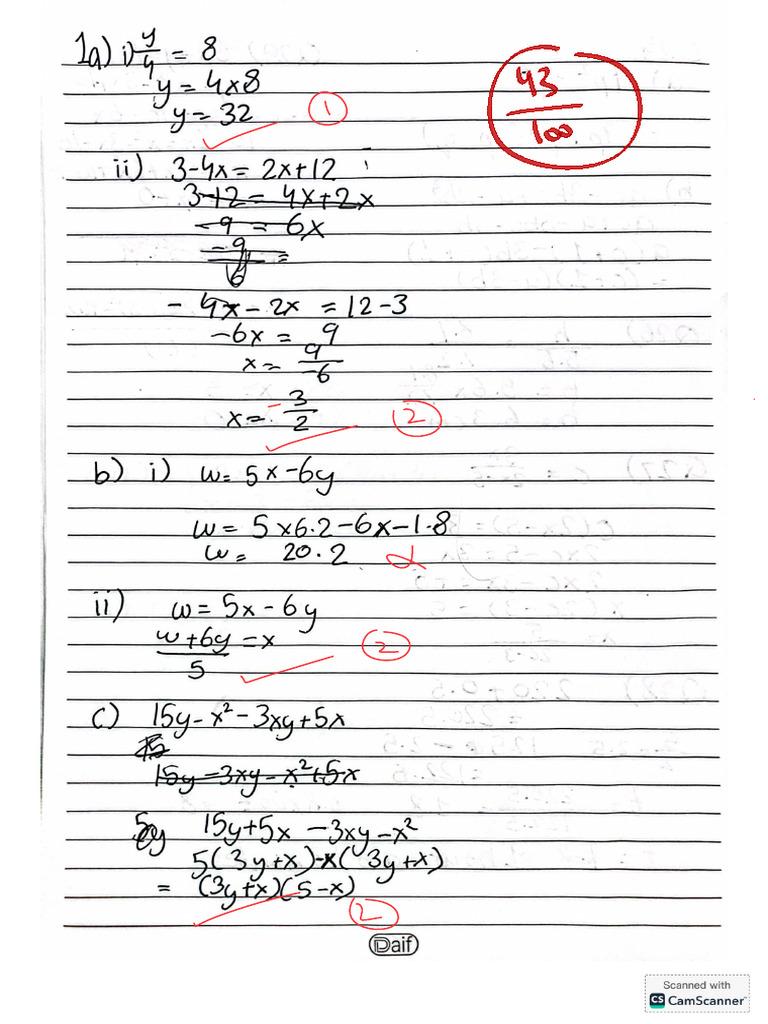 1a) i) y/4 = 8
y = 4x8
y = 32 1
43/100
ii) 3-4x = 2x+12
3-12 = 4x+2x
-9 = 6x
-9/6 =
- 4x - 2x = 12-3
-6x = 9
x = 9/-6
x = -3/2 2
b) i) w= 5x-6y
w = 5x6.2-6x-1.8
w = 20.2
ii) w = 5x - 6y
w+6y/5 = x 2
c) 15y - x² - 3xy + 5x
15
15y - 3xy - x² + 5x
15y+5x - 3xy - x²
5(3y+x)-x(3y+x)
= (3y+x)(5-x)
2
Daif
Scanned with
CS CamScanner